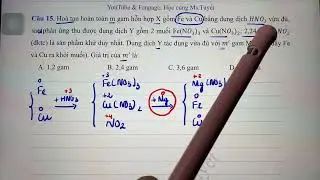 YouTube & Fanpage: Học cùng Ms.Tuyết
Câu 15. Hoà tan hoàn toàn m gam hỗn hợp X gồm Fe và Cu bằng dung dịch HNO₃ vừa đủ,
phản ứng thu được dung dịch Y gồm 2 muối Fe(NO₃)₃ và Cu(NO₃)₂; 2,24 NO₂
(đktc) là sản phẩm khử duy nhất. Dung dịch Y tác dụng vừa đủ với m' gam Fe
và Cu ra khỏi muối). Giá trị của m' là
A. 1,2 gam B. 2,4 gam C. 3,6 gam D.
0 +3 +2
Fe +HNO₃ Fe(NO₃)₃ 0 Mg(NO₃)₂
0 +2 +Mg 0
Cu Cu(NO₃)₂ Fe
+4 0
NO₂ Cu